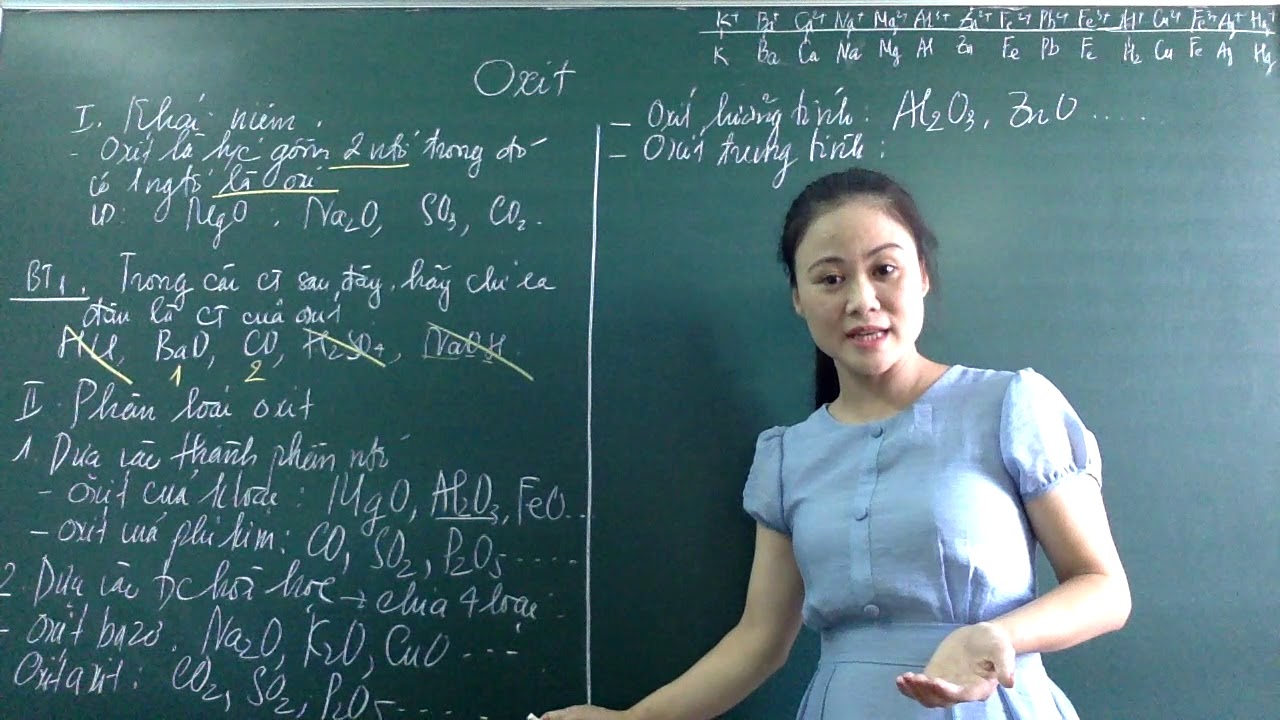 K⁺ Ba²⁺ Ca²⁺ Na⁺ Mg²⁺ Al³⁺ Zn²⁺ Fe²⁺ Pb²⁺ Fe³⁺ H⁺ Cu²⁺ Fe³⁺ Ag⁺ Hg²⁺
K Ba Ca Na Mg Al Zn Fe Pb Fe H₂ Cu Fe Ag Hg
Oxit
I. Khái niệm.
- Oxit là h/c gồm 2 ntố trong đó
có 1 ngtố là oxi
VD: MgO, Na₂O, SO₃, CO₂.
BT1. Trong các CT sau đây, hãy chỉ ra
đâu là CT của oxit
BaO, CO, H₂SO₄, NaOH
1 2
II. Phân loại oxit
1. Dựa vào thành phần ntố
- Oxit của kloại: MgO, Al₂O₃, FeO..
- oxit của phi kim: CO, SO₂, P₂O₅.....
2. Dựa vào t/c hoá học → chia 4 loại:
- Oxit bazơ. Na₂O, K₂O, CuO ...
Oxit axit: CO₂, SO₂, P₂O₅....
- Oxit lưỡng tính: Al₂O₃, ZnO .....
- Oxit trung tính: